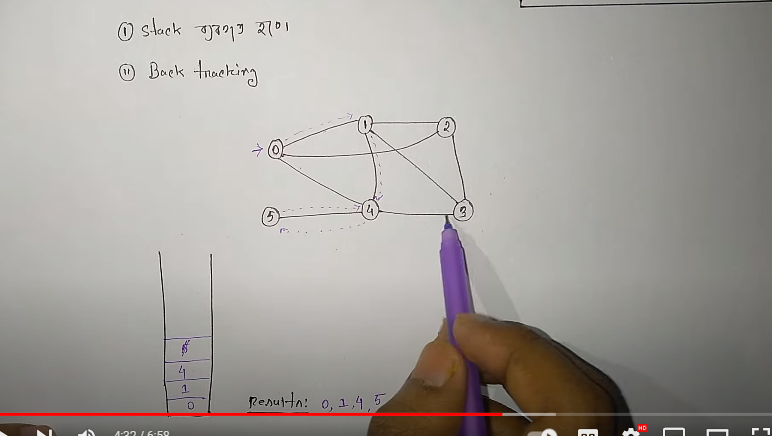 (i) Stack ব্যবহৃত হবে।
(ii) Back tracking
1
2
0
5
4
3
5
4
1
0
Results: 0, 1, 4, 5
4:32 / 6:58
HD